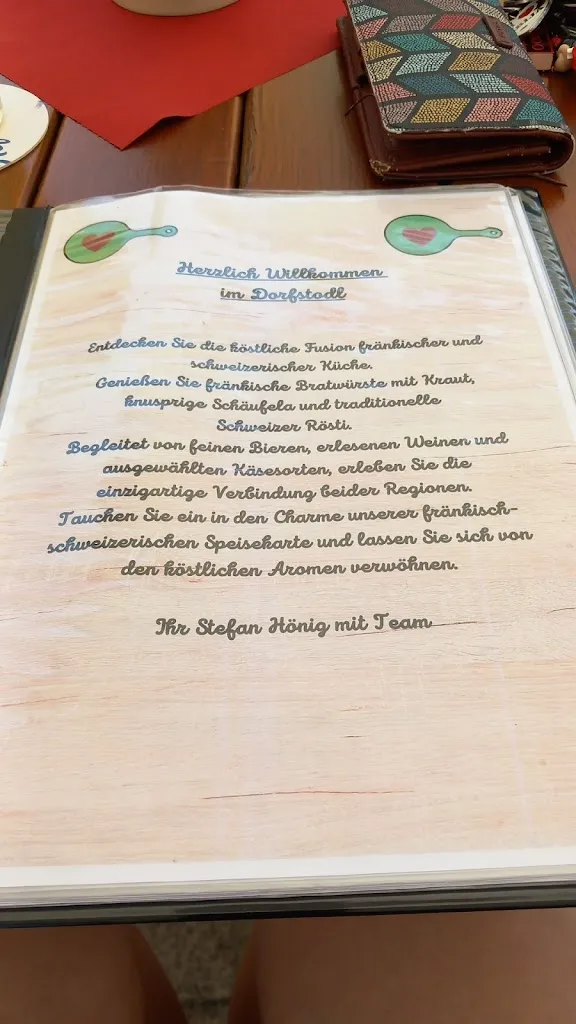 Herzlich Willkommen
im Dorfstodl
Entdecken Sie die köstliche Fusion fränkischer und
schweizerischer Küche.
Genießen Sie fränkische Bratwürste mit Kraut,
knusprige Schäufela und traditionelle
Schweizer Rösti.
Begleitet von feinen Bieren, erlesenen Weinen und
ausgewählten Käsesorten, erleben Sie die
einzigartige Verbindung beider Regionen.
Tauchen Sie ein in den Charme unserer fränkisch-
schweizerischen Speisekarte und lassen Sie sich von
den köstlichen Aromen verwöhnen.
Ihr Stefan Hönig mit Team